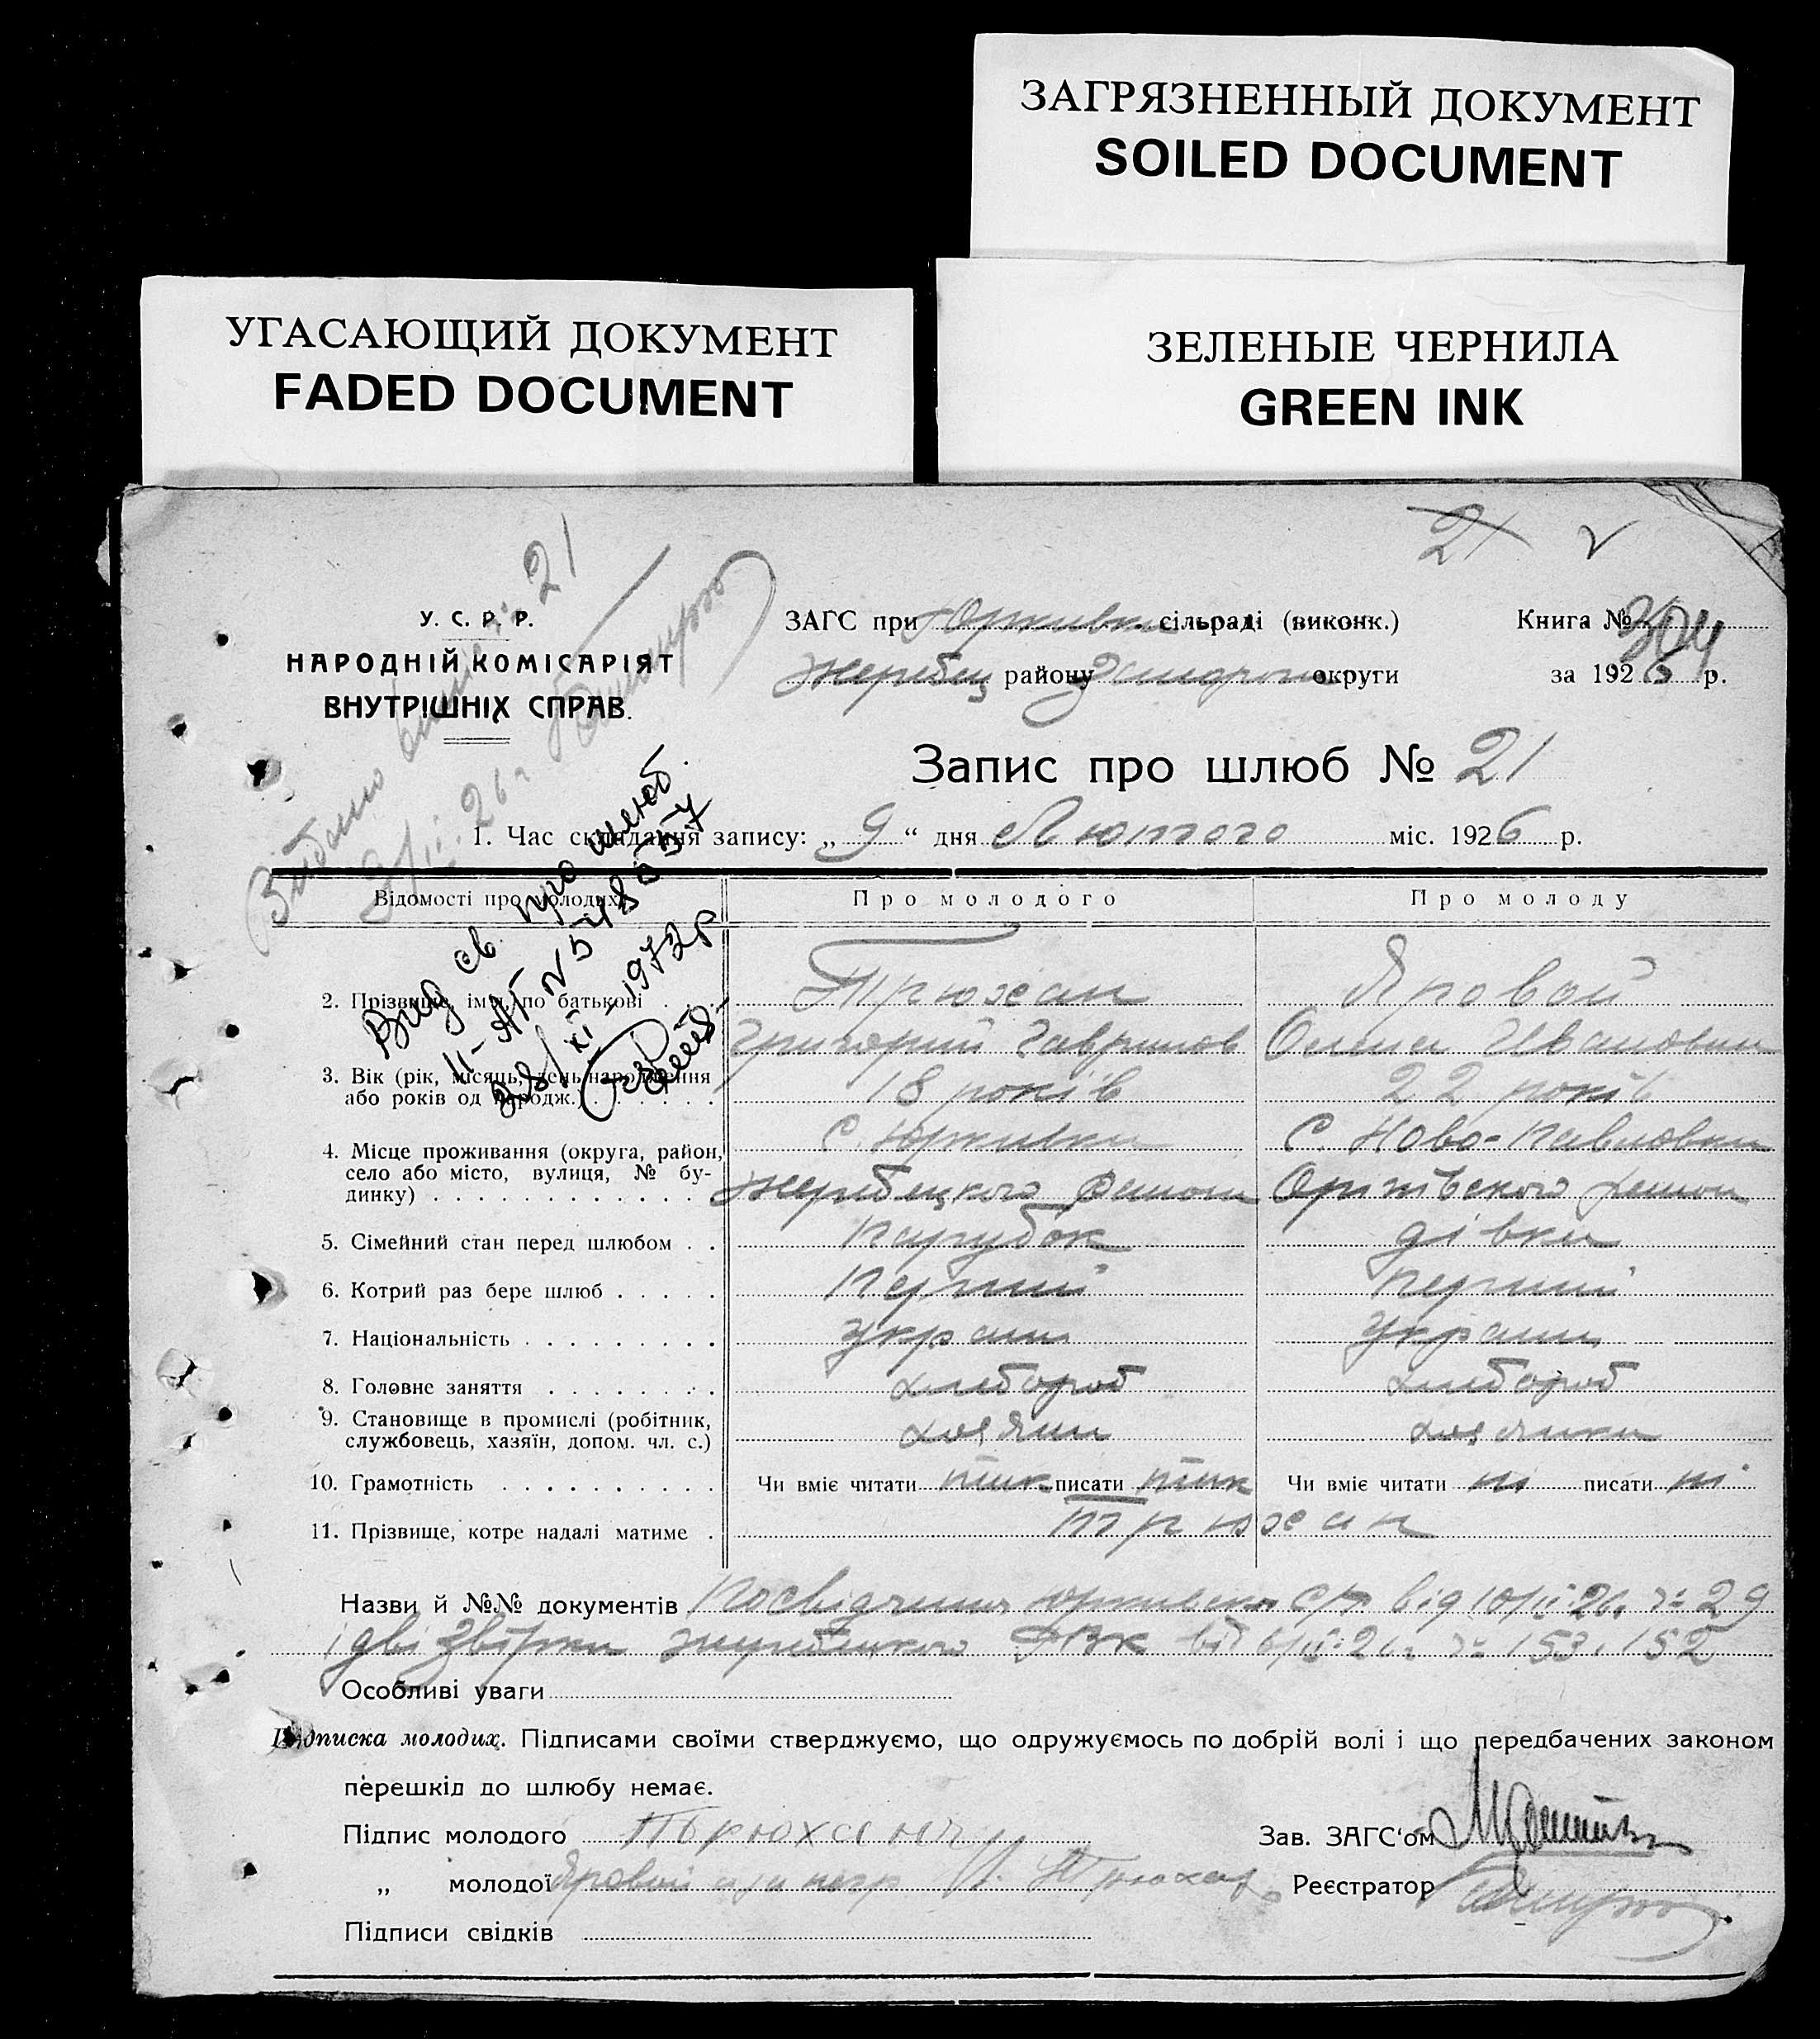 ЗАГРЯЗНЕННЫЙ ДОКУМЕНТ
SOILED DOCUMENT
УГАСАЮЩИЙ ДОКУМЕНТ
FADED DOCUMENT
ЗЕЛЕНЫЕ ЧЕРНИЛА
GREEN INK
21
У. С. Р. Р.
НАРОДНІЙ КОМІСАРІЯТ
ВНУТРІШНІХ СПРАВ.
ЗАГС при Юркивки сільраді (виконк.)
Жеребец району Запорож округи
Книга № 304
за 1926 р.
Запис про шлюб № 21
1. Час складання запису: „ 9 “ дня Лютого міс. 1926 р.
Видано 21
9/II. 26 г.
Вид св про шлюб.
II-АП № 548557
28/XI-1972р
Відомості про молодих Про молодого Про молоду
2. Прізвище, імя, по батькові . . Трюхан Яровой
Григорий Гаврилов Ивановна
3. Вік (рік, місяць, день народження
або років од народж.) . . . . . . . 18 років 22 років
4. Місце проживання (округа, район, С. Юркивки С. Ново-Павловки
село або місто, вулиця, № бу-
динку) . . . . . . . . . . . . . Жеребецкого Району Оріхівського району
5. Сімейний стан перед шлюбом . . Парубок дівка
6. Котрий раз бере шлюб . . . . . Перший Перший
7. Національність . . . . . . . . . Украин Украин
8. Головне заняття . . . . . . . . хлібороб хлібороб
9. Становище в промислі (робітник,
службовець, хазяїн, допом. чл. с.) хозяин хозяика
10. Грамотність . . . . . . . . . . Чи вміє читати так писати так Чи вміє читати ні писати ні
11. Прізвище, котре надалі матиме . Трюхан
Назви й №№ документів Посвідчення Юркивской С/р від 10/II-26 № 29
і дві Жеребецкого РВК від 6/II-26 № 153, 152
Особливі уваги
Підписка молодих. Підписами своїми стверджуємо, що одружуємось по добрій волі і що передбачених законом
перешкід до шлюбу немає.
Підпис молодого Зав. ЗАГС‘ом
„ молодої Яровой Трюхан Реєстратор
Підписи свідків